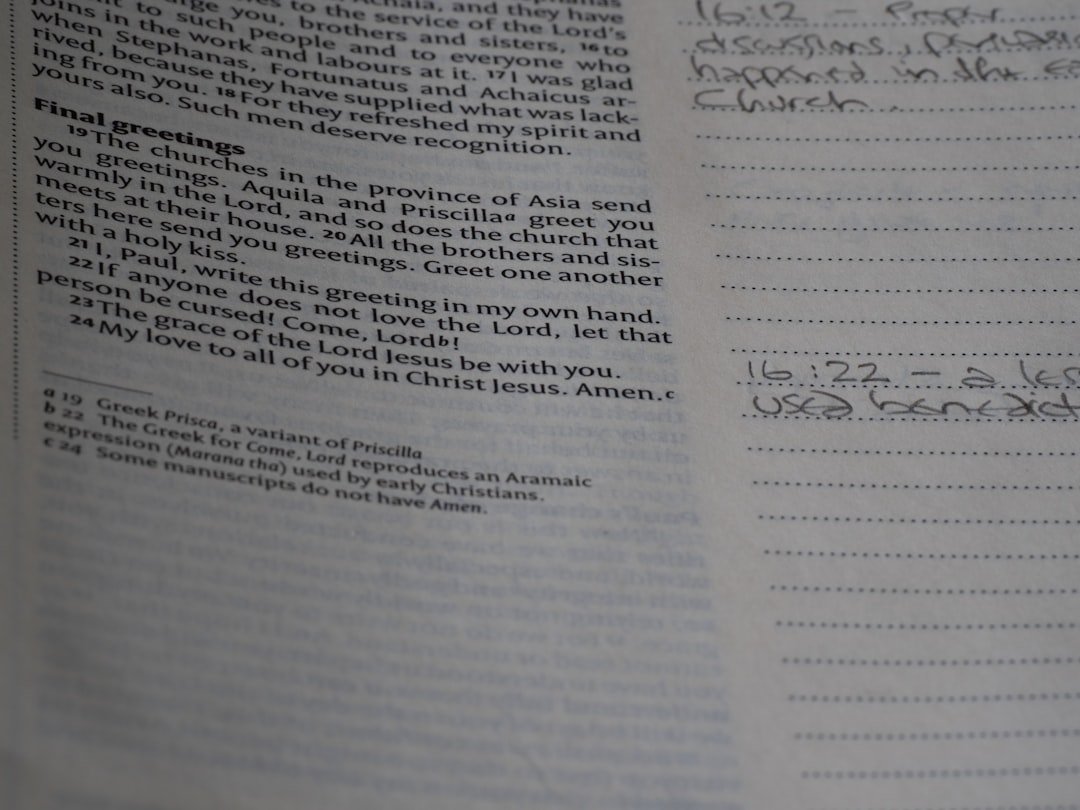 Achaia, and they have
to the service of the Lord's
you, brothers and sisters, 16 to
to such people and to everyone who
joins in the work and labours at it. 17 I was glad
when Stephanas, Fortunatus and Achaicus ar-
rived, because they have supplied what was lack-
ing from you. 18 For they refreshed my spirit and
yours also. Such men deserve recognition.
Final greetings
19 The churches in the province of Asia send
you greetings. Aquila and Priscilla a greet you
warmly in the Lord, and so does the church that
meets at their house. 20 All the brothers and sis-
ters here send you greetings. Greet one another
with a holy kiss.
21 I, Paul, write this greeting in my own hand.
22 If anyone does not love the Lord, let that
person be cursed! Come, Lord b!
23 The grace of the Lord Jesus be with you.
24 My love to all of you in Christ Jesus. Amen. c
a 19 Greek Prisca, a variant of Priscilla
b 22 The Greek for Come, Lord reproduces an Aramaic
expression (Marana tha) used by early Christians.
c 24 Some manuscripts do not have Amen.
16:12 - Proper
discussions,
happened in the
Church.
16:22 - a
used